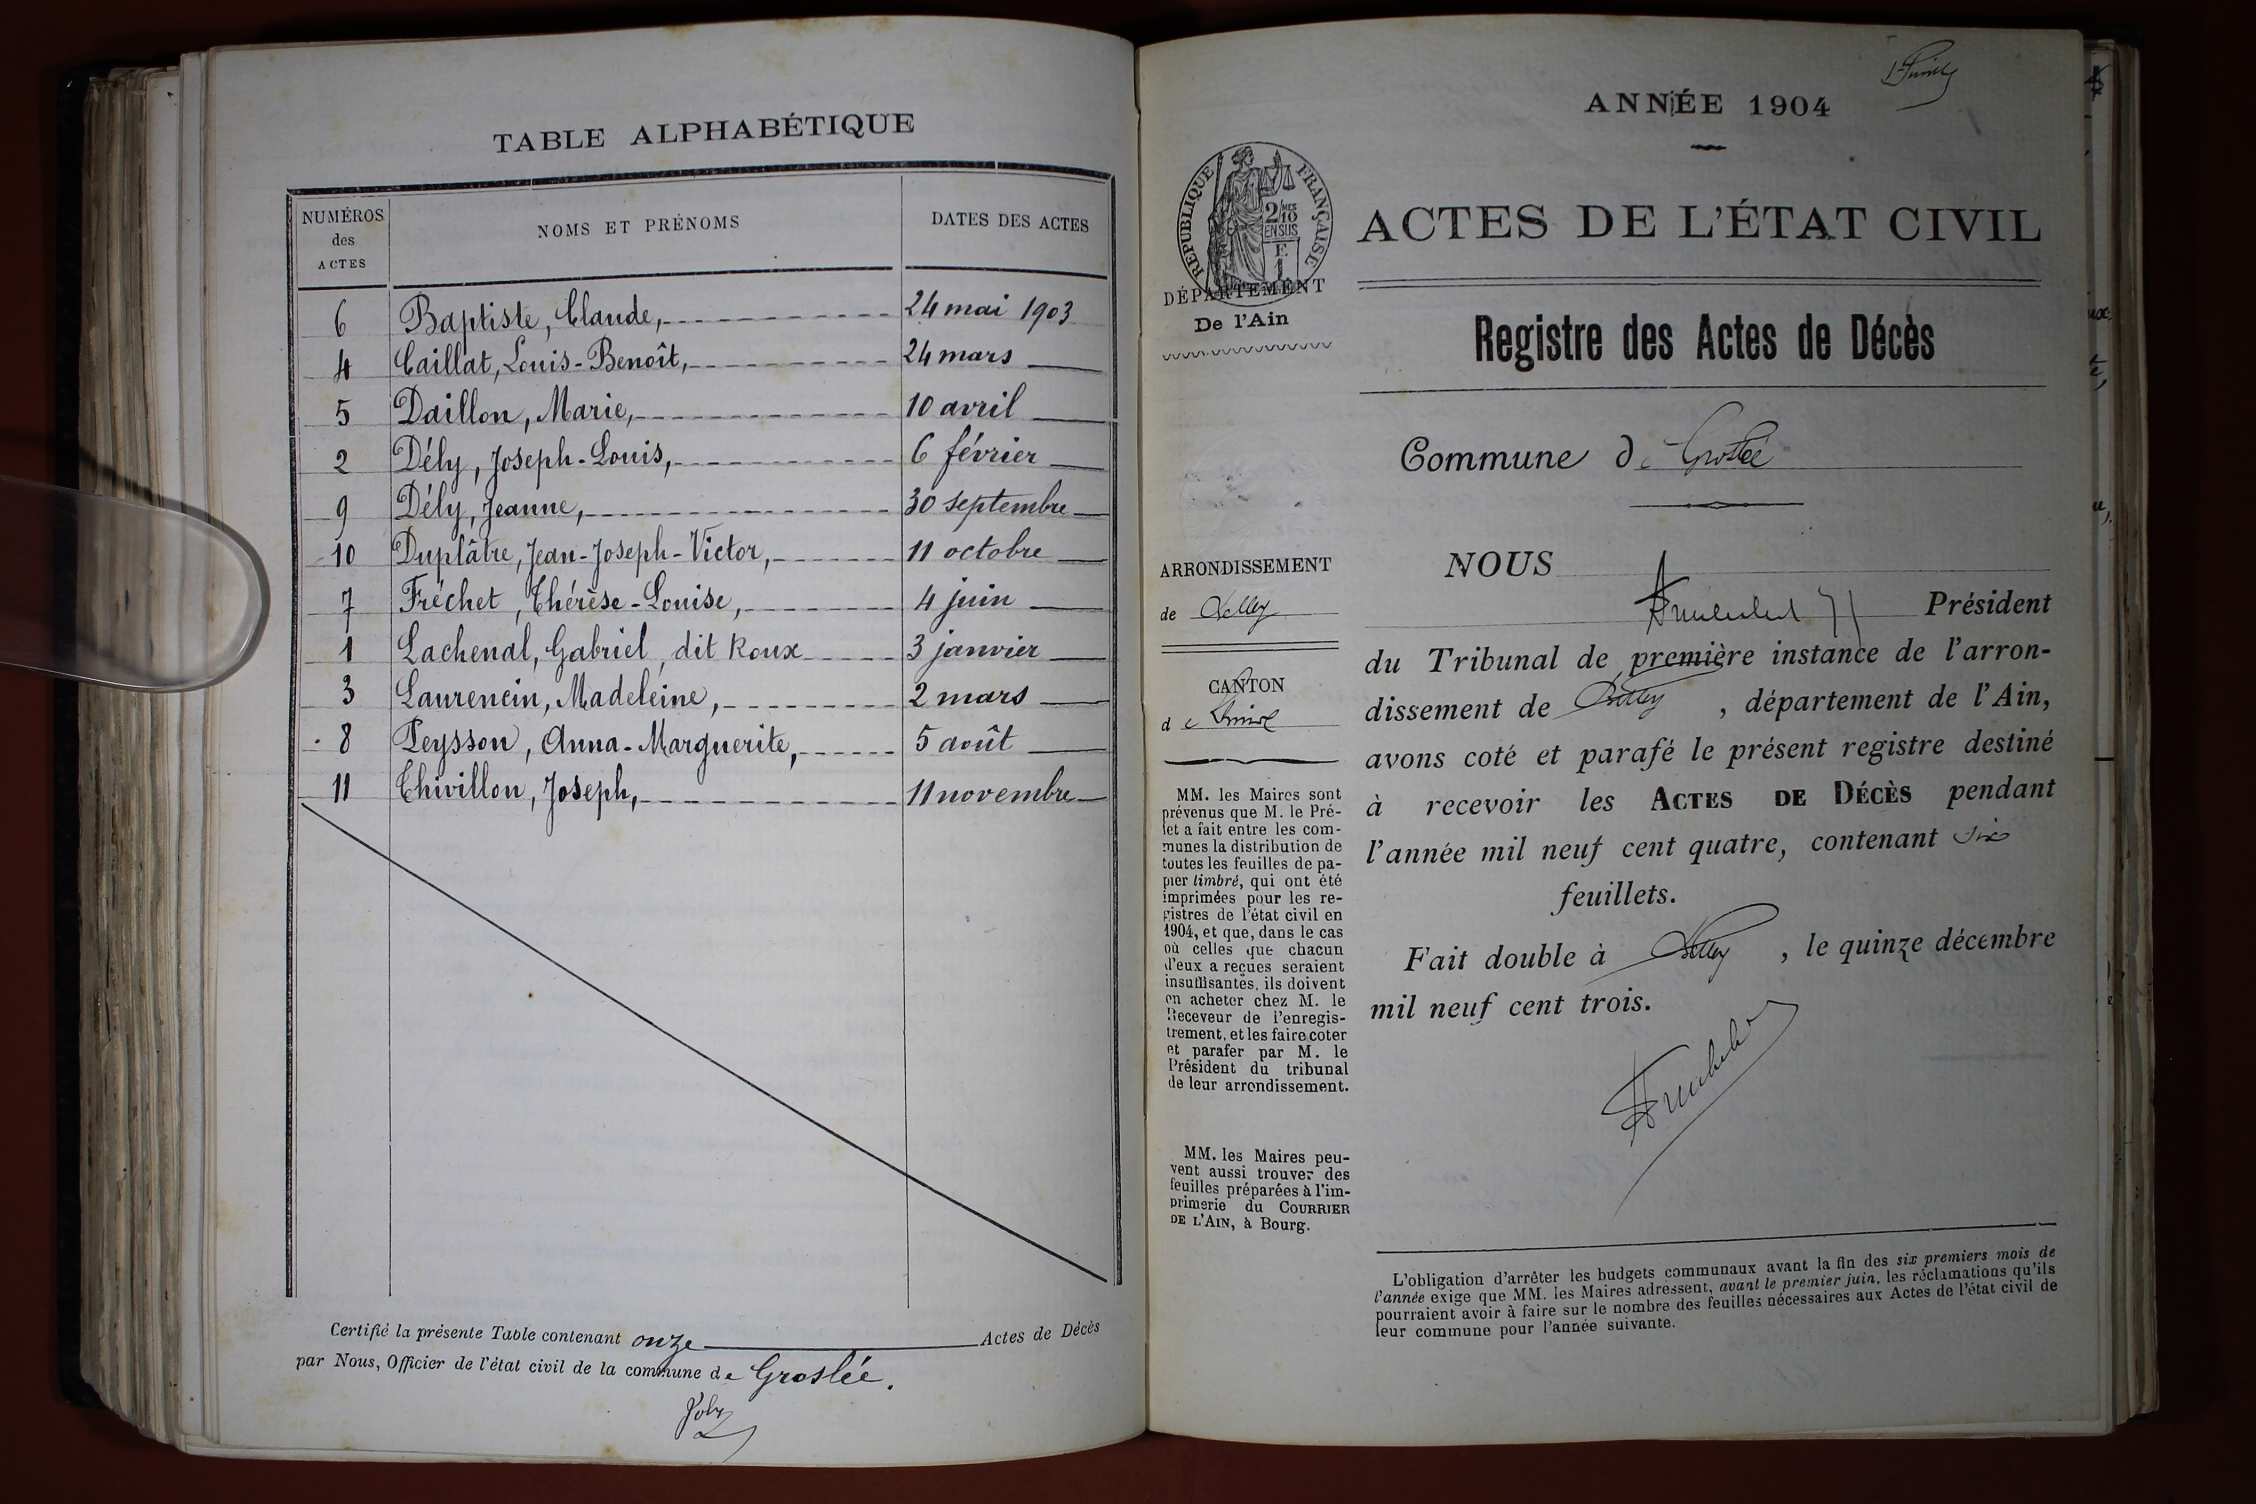 TABLE ALPHABÉTIQUE
NUMÉROS des ACTES
NOMS ET PRÉNOMS
DATES DES ACTES
6 Baptiste, Claude, 24 mai 1903
4 Caillat, Louis-Benoît, 24 mars
5 Daillon, Marie, 10 avril
2 Dély, Joseph-Louis, 6 février
9 Dély, Jeanne, 30 septembre
10 Duplâtre, Jean-Joseph-Victor, 11 octobre
7 Fréchet, Thérèse-Louise, 4 juin
1 Lachenal, Gabriel, dit Roux 3 janvier
3 Laurencin, Madeleine, 2 mars
8 Peysson, Anna-Marguerite, 5 août
11 Chivillon, Joseph, 11 novembre
Certifié la présente Table contenant onze Actes de Décès
par Nous, Officier de l'état civil de la commune de Groslée.
Joly
ANNÉE 1904
RÉPUBLIQUE FRANÇAISE
2/10 MES
EN SUS
F
1
DÉPARTEMENT
De l'Ain
ACTES DE L'ÉTAT CIVIL
Registre des Actes de Décès
Commune de Groslée
ARRONDISSEMENT
de Belley
CANTON
de
MM. les Maires sont
prévenus que M. le Pré-
fet a fait entre les com-
munes la distribution de
toutes les feuilles de pa-
pier timbré, qui ont été
imprimées pour les re-
gistres de l'état civil en
1904, et que, dans le cas
où celles que chacun
d'eux a reçues seraient
insuffisantes, ils doivent
en acheter chez M. le
Receveur de l'enregis-
trement, et les faire coter
et parafer par M. le
Président du tribunal
de leur arrondissement.
MM. les Maires peu-
vent aussi trouver des
feuilles préparées à l'im-
primerie du COURRIER
DE L'AIN, à Bourg.
NOUS
Président
du Tribunal de première instance de l'arron-
dissement de Belley, département de l'Ain,
avons coté et parafé le présent registre destiné
à recevoir les ACTES DE DÉCÈS pendant
l'année mil neuf cent quatre, contenant six
feuillets.
Fait double à Belley, le quinze décembre
mil neuf cent trois.
L'obligation d'arrêter les budgets communaux avant la fin des six premiers mois de
l'année exige que MM. les Maires adressent, avant le premier juin, les réclamations qu'ils
pourraient avoir à faire sur le nombre des feuilles nécessaires aux Actes de l'état civil de
leur commune pour l'année suivante.